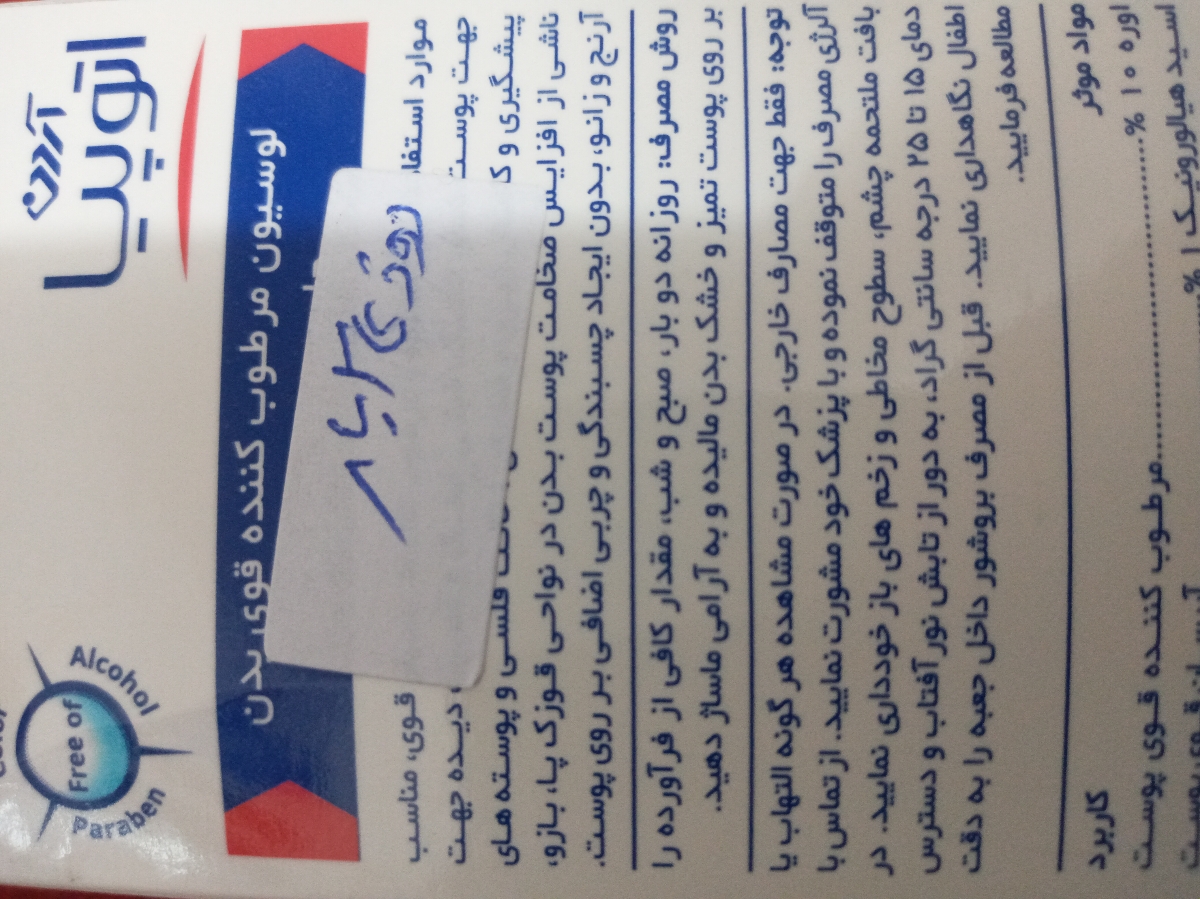 آردن
اتوپیا
لوسیون مرطوب کننده قوی بدن
Free of
Alcohol
Paraben
موارد استفا
قوی، مناسب
جهت پوست
دیده جهت
پیشگیری و ک
فلسی و پوسته های
ناشی از افزایش ضخامت پوست بدن در نواحی قوزک پا، بازو،
آرنج و زانو، بدون ایجاد چسبندگی و چربی اضافی بر روی پوست.
روش مصرف: روزانه دو بار، صبح و شب، مقدار کافی از فرآورده را
بر روی پوست تمیز و خشک بدن مالیده و به آرامی ماساژ دهید.
توجه: فقط جهت مصارف خارجی. در صورت مشاهده هر گونه التهاب یا
آلرژی مصرف را متوقف نموده و با پزشک خود مشورت نمایید. از تماس با
بافت ملتحمه چشم، سطوح مخاطی و زخم های باز خودداری نمایید. در
دمای ۱۵ تا ۲۵ درجه سانتی گراد، به دور از تابش نور آفتاب و دسترس
اطفال نگاهداری نمایید. قبل از مصرف بروشور داخل جعبه را به دقت
مطالعه فرمایید.
مواد موثر
کاربرد
اوره ۱۰ %..............................مرطوب کننده قوی پوست
اسید هیالورونیک ۱ %